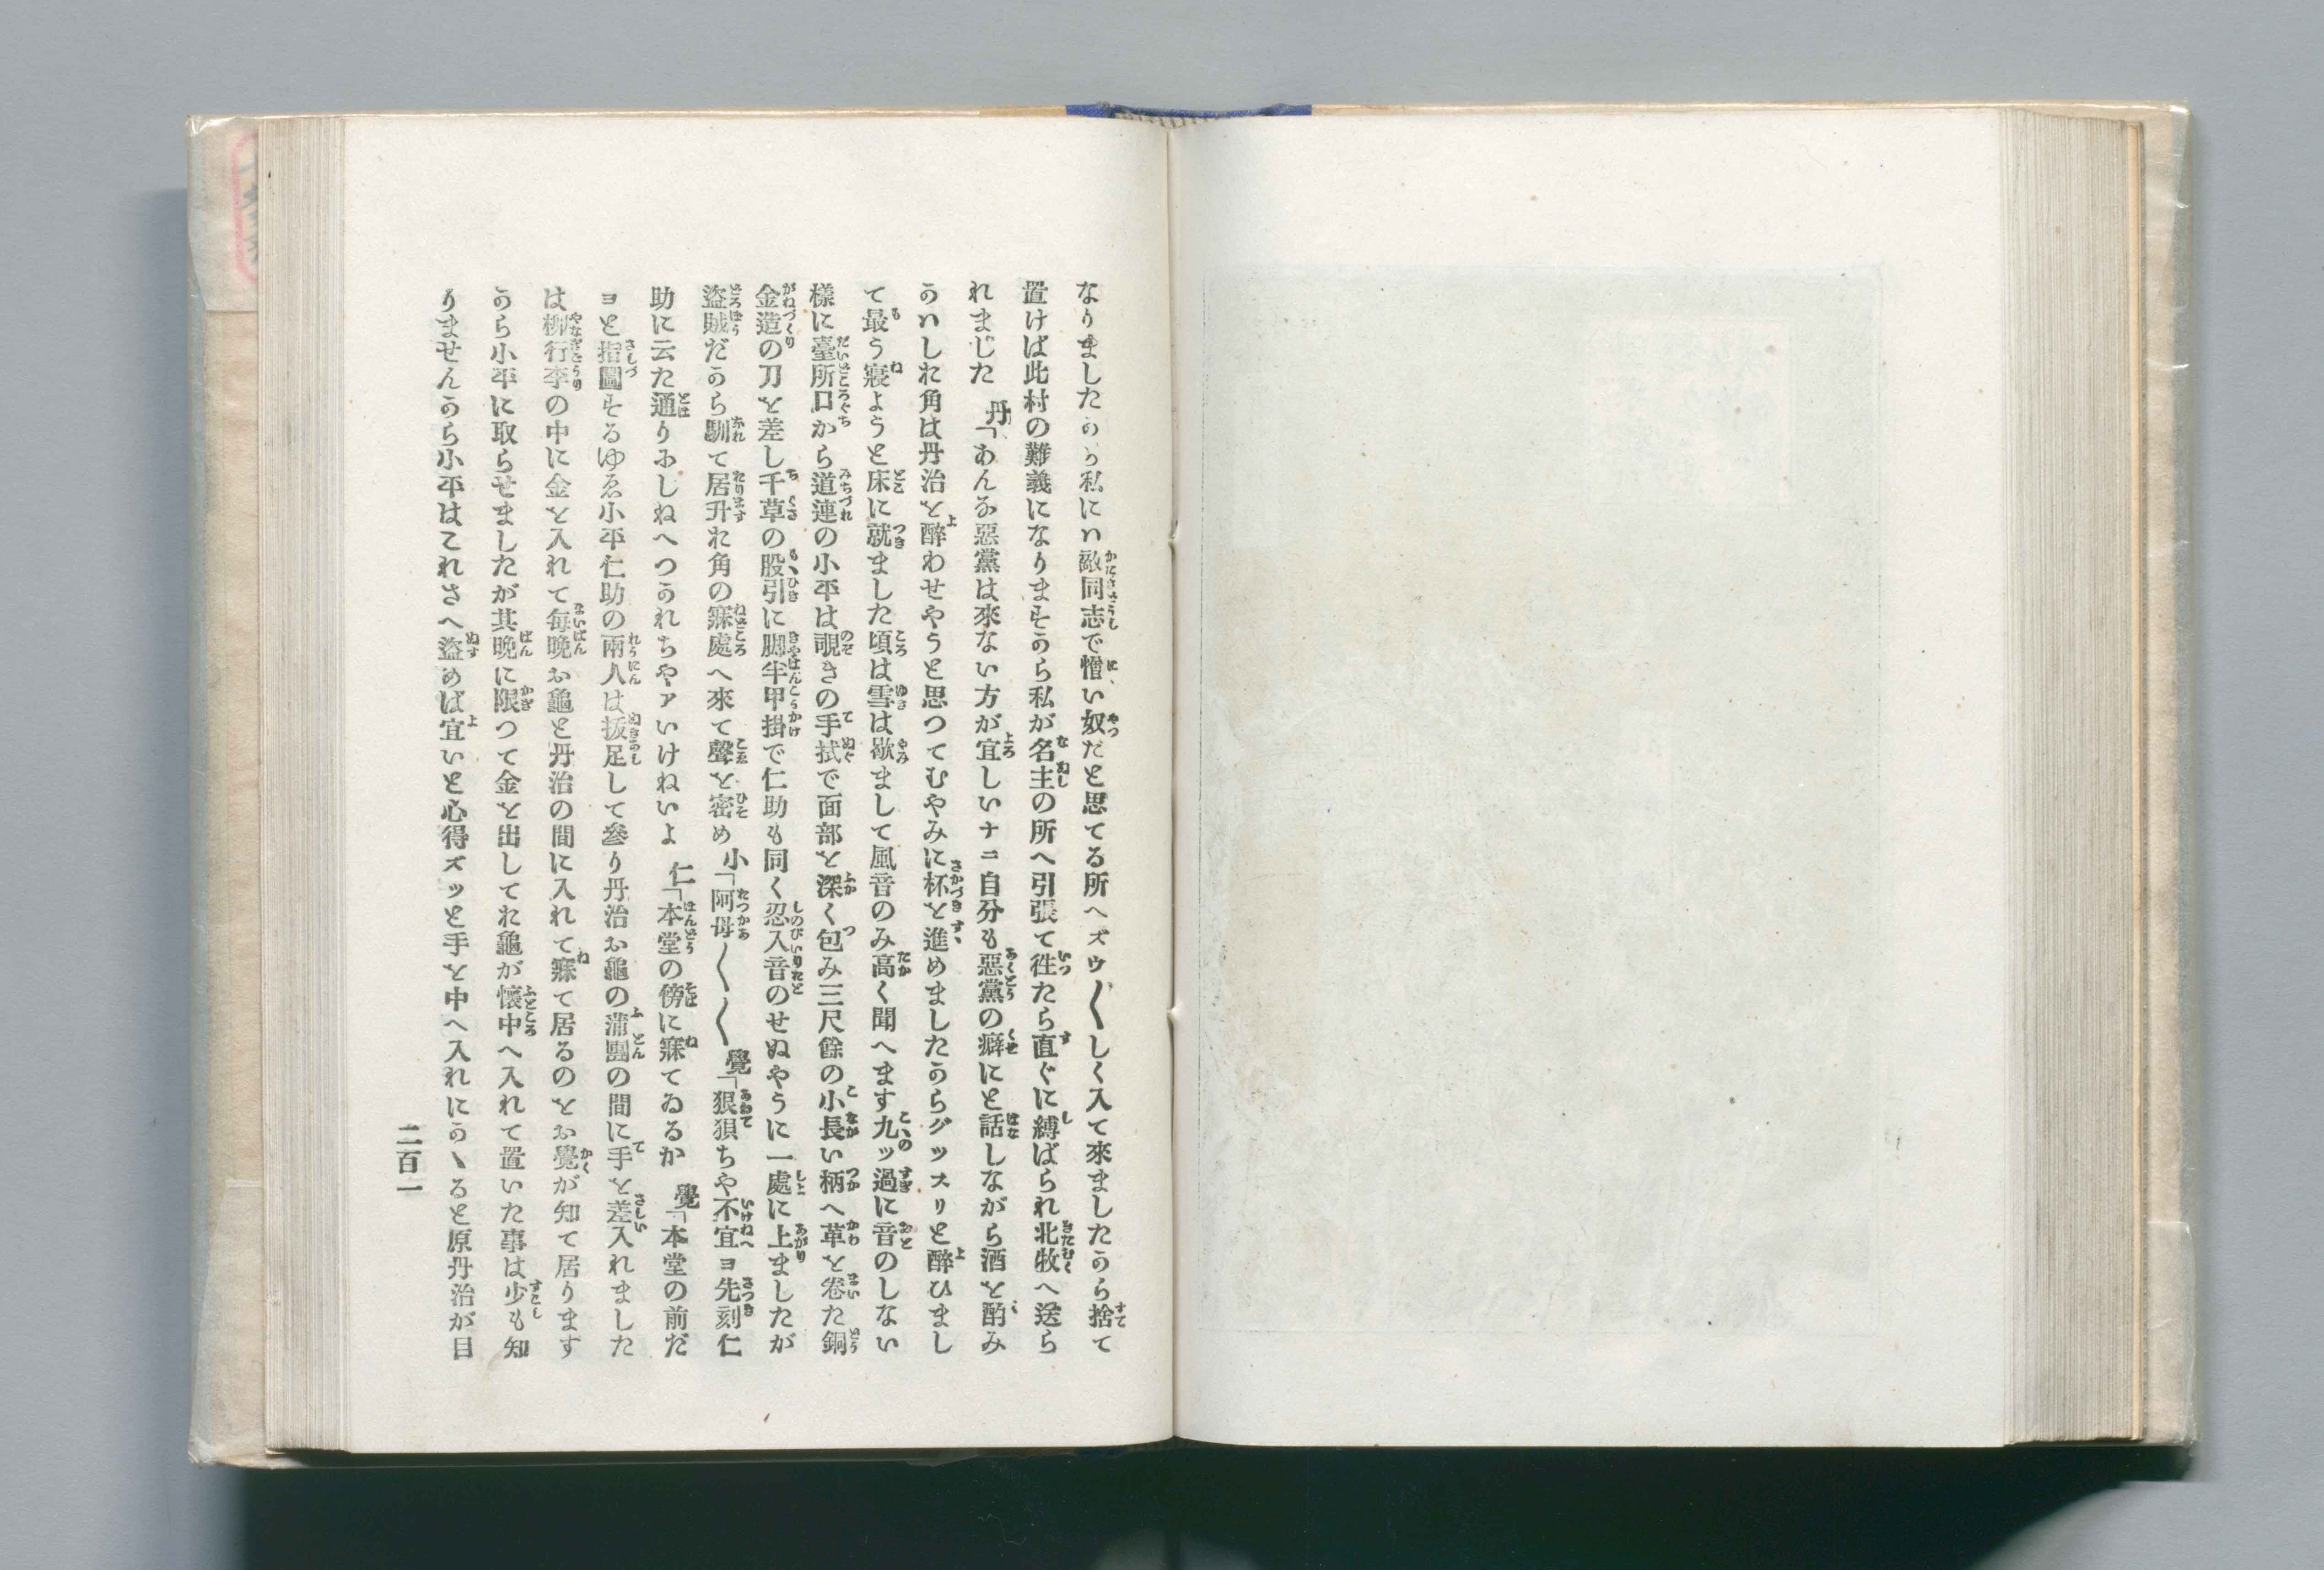 なりましたから私にハ敵同志で憎い奴だと思てる所へズウ〱しく入て來ましたから捨て
置けば此村の難義になりますから私が名主の所へ引張て徃たら直ぐに縛ばられ北牧へ送ら
れました　丹「あんな惡黨は來ない方が宜しいナニ自分も惡黨の癖にと話しながら酒を酌み
かハしお角は丹治を醉わせやうと思つてむやみに杯を進めましたからグッスリと醉ひまし
て最う寢ようと床に就ました頃は雪は歇まして風音のみ高く聞へます九ッ過に音のしない
樣に臺所口から道連の小平は覗きの手拭で面部を深く包み三尺餘の小長い柄へ革を卷た銅
金造の刀を差し千草の股引に脚半甲掛で仁助も同く忍入音のせぬやうに一處に上ましたが
盜賊だから馴て居升お角の寐處へ來て聲を密め　小「阿母〱〱　覺「狠狽ちや不宜ヨ先刻仁
助に云た通りおしねへつかれちやァいけねいよ　仁「本堂の傍に寐てゐるか　覺「本堂の前だ
ヨと指圖するゆゑ小平仁助の兩人は拔足して參り丹治お龜の蒲團の間に手を差入れました
は柳行李の中に金を入れて毎晩お龜と丹治の間に入れて寐て居るのをお覺が知て居ります
から小平に取らせましたが其晩に限つて金を出してお龜が懷中へ入れて置いた事は少も知
りませんから小平はこれさへ盜めば宜いと心得ズッと手を中へ入れにかゝると原丹治が目
二百一